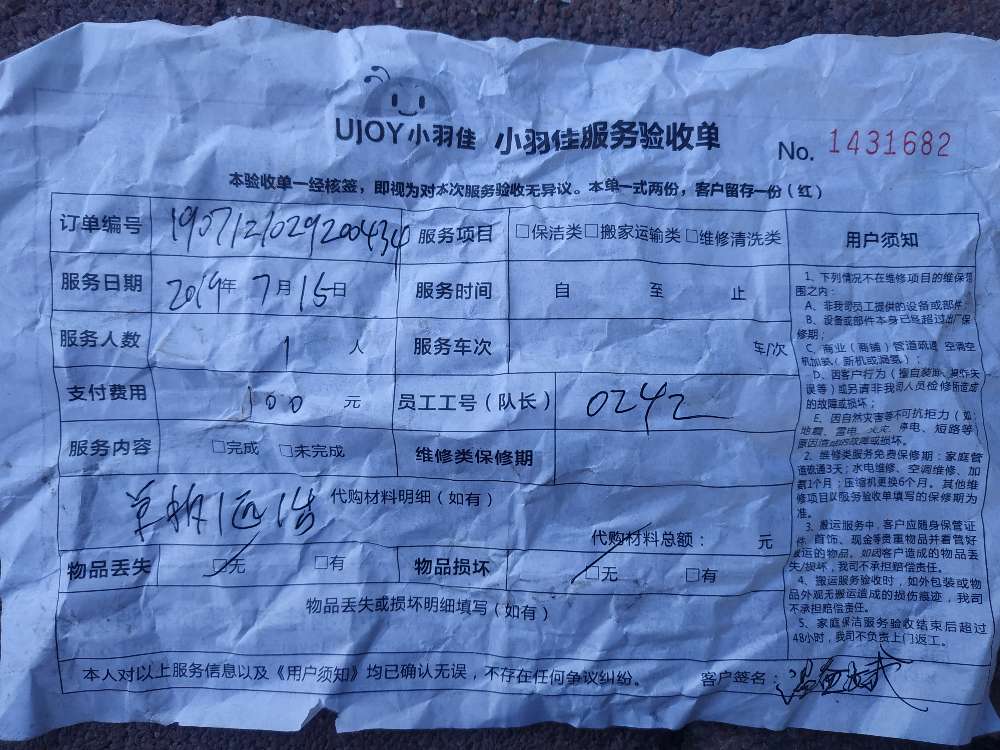 UJOY小羽佳 小羽佳服务验收单 No. 1431682
本验收单一经核签，即视为对本次服务验收无异议。本单一式两份，客户留存一份（红）
订单编号 1907121029200434 服务项目 □保洁类□搬家运输类□维修清洗类 用户须知
服务日期 2019年7月15日 服务时间 自 至 止
服务人数 1 人 服务车次 车/次
支付费用 100 元 员工工号（队长） 0242
服务内容 □完成 □未完成 维修类保修期
代购材料明细（如有）
代购材料总额： 元
物品丢失 □无 □有 物品损坏 □无 □有
物品丢失或损坏明细填写（如有）
本人对以上服务信息以及《用户须知》均已确认无误，不存在任何争议纠纷。 客户签名：
1、下列情况不在维修项目的维保范
围之内：
A、非我司员工提供的设备或部件
B、设备或部件本身已经超过出厂保
修期；
C、商业（商铺）管道疏通 空调空
机加氨（新机或漏氨）；
D、因客户行为（擅自装卸、操作失
误等）或另请非我司人员检修所造成
的故障或损坏；
E、因自然灾害等不可抗拒力（如：
地震、雷电、火灾、停电、短路等）
原因造成的故障或损坏。
2、维修类服务免费保修期：家庭管
道疏通3天；水电维修、空调维修、加
氨1个月；压缩机更换6个月。其他维
修项目以服务验收单填写的保修期为
准。
3、搬运服务中，客户应随身保管证
件、首饰、现金等贵重物品并看管好
搬运的物品，如因客户造成的物品丢
失/损坏，我司不承担赔偿责任。
4、搬运服务验收时，如外包装或物
品外观无搬运造成的损伤痕迹，我司
不承担赔偿责任。
5、家庭保洁服务验收结束后超过
48小时，我司不负责上门返工。